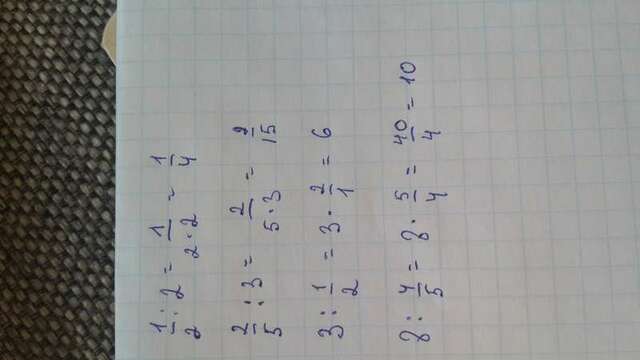 1/2 : 2 = 1/(2·2) = 1/4
2/5 : 3 = 2/(5·3) = 2/15
3 : 1/2 = 3 · 2/1 = 6
8 : 4/5 = 8 · 5/4 = 40/4 = 10